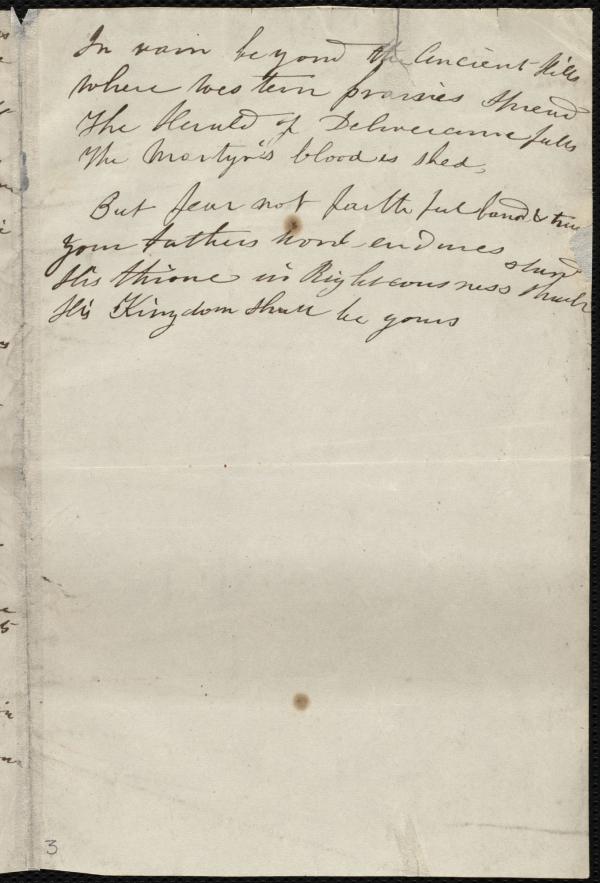 In vain beyond the Ancient Hills
Where Western prairies spread
The Herald of Deliverance falls
The Martyr's blood is shed,
But fear not faithful band & true
your Fathers word endures
His throne in Righteousness shall stand
His Kingdom shall be yours
3